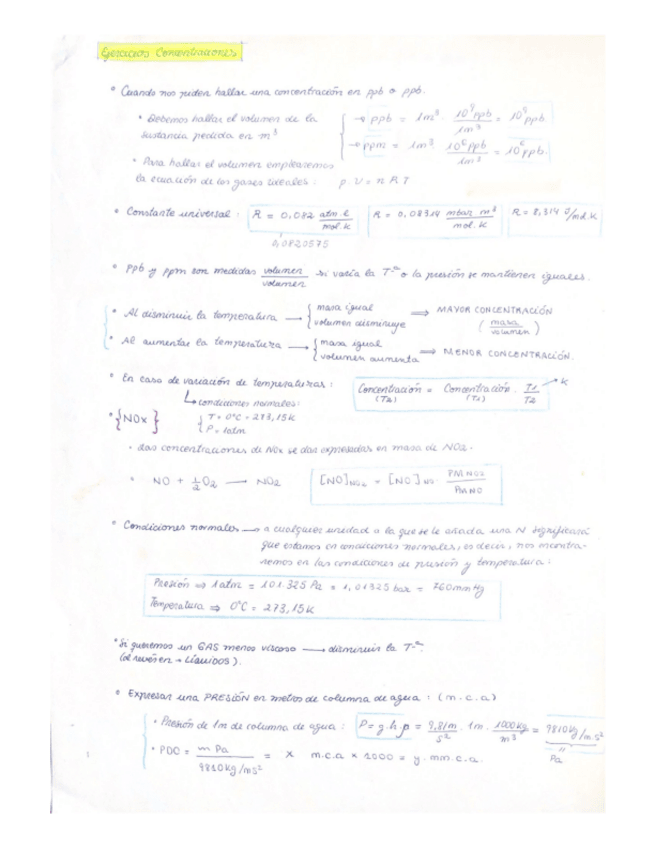 Ejercicios Concentraciones
• Cuando nos piden hallar una concentración en ppb o ppb.
• Debemos hallar el volumen de la
sustancia pedida en m³
→ ppb = 1m³ · 10⁹ppb / 1m³ = 10⁹ ppb.
→ ppm = 1m³ · 10⁶ppb / 1m³ = 10⁶ ppb.
• Para hallar el volumen emplearemos
la ecuación de los gases ideales: p.V = n R T
• Constante universal: R = 0,082 atm·l / mol.K R = 0,08314 mbar m³ / mol.K R = 8,314 J/mol.K
0,0820575
• Ppb y ppm son medidas volumen/volumen si varía la Tª o la presión se mantienen iguales.
• Al disminuir la temperatura → { masa igual volumen disminuye ⇒ MAYOR CONCENTRACIÓN (masa/volumen)
• Al aumentar la temperatura → { masa igual volumen aumenta ⇒ MENOR CONCENTRACIÓN.
• En caso de variación de temperaturas: Concentración (T2) = Concentración (T1) · T1/T2 → K
↳ condiciones normales:
{ T = 0°C = 273,15K
P = 1atm
• {NOx}
• Las concentraciones de NOx se dan expresadas en masa de NO2.
• NO + ½O2 → NO2 [NO]NO2 = [NO]NO · PM NO2 / PM NO
• Condiciones normales → a cualquier unidad a la que se le añada una N significará
que estamos en condiciones normales, es decir, nos encontra-
remos en las condiciones de presión y temperatura:
Presión ⇒ 1atm = 101.325 Pa = 1,01325 bar = 760mmHg
Temperatura ⇒ 0°C = 273,15K
• Si queremos un GAS menos viscoso → disminuir la Tª.
(al revés en → LÍQUIDOS).
• Expresar una PRESIÓN en metros de columna de agua: (m.c.a)
• Presión de 1m de columna de agua: P = g.h.ρ = 9,81m/s² · 1m · 1000Kg/m³ = 9810Kg/m.s²
" Pa
• PDC = m Pa / 9810Kg/ms² = x m.c.a × 1000 = y. mm.c.a.